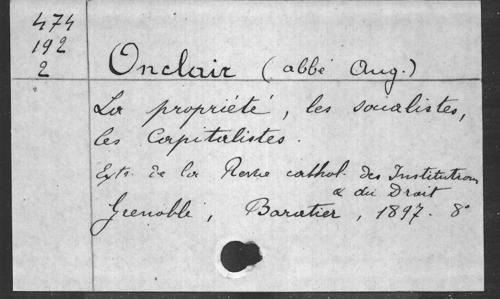 474
192
2
Onclair (abbé Aug.)
La propriété, les socialistes,
les Capitalistes.
Exts. de la Revue cathol. des Institutions
& du Droit
Grenoble, Baratier, 1897. 8°